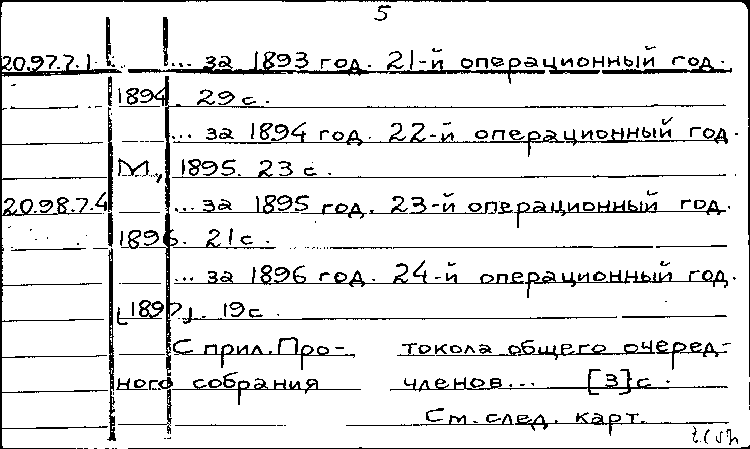 5
20.97.7.1 ... за 1893 год. 21-й операционный год.
1894. 29 с.
... за 1894 год. 22-й операционный год.
М., 1895. 23 с.
20.98.7.4 ... за 1895 год. 23-й операционный год.
1896. 21 с.
... за 1896 год. 24-й операционный год.
[1897]. 19 с
С прил. Про- токола общего очеред-
ного собрания членов... [3] с.
См. след. карт.